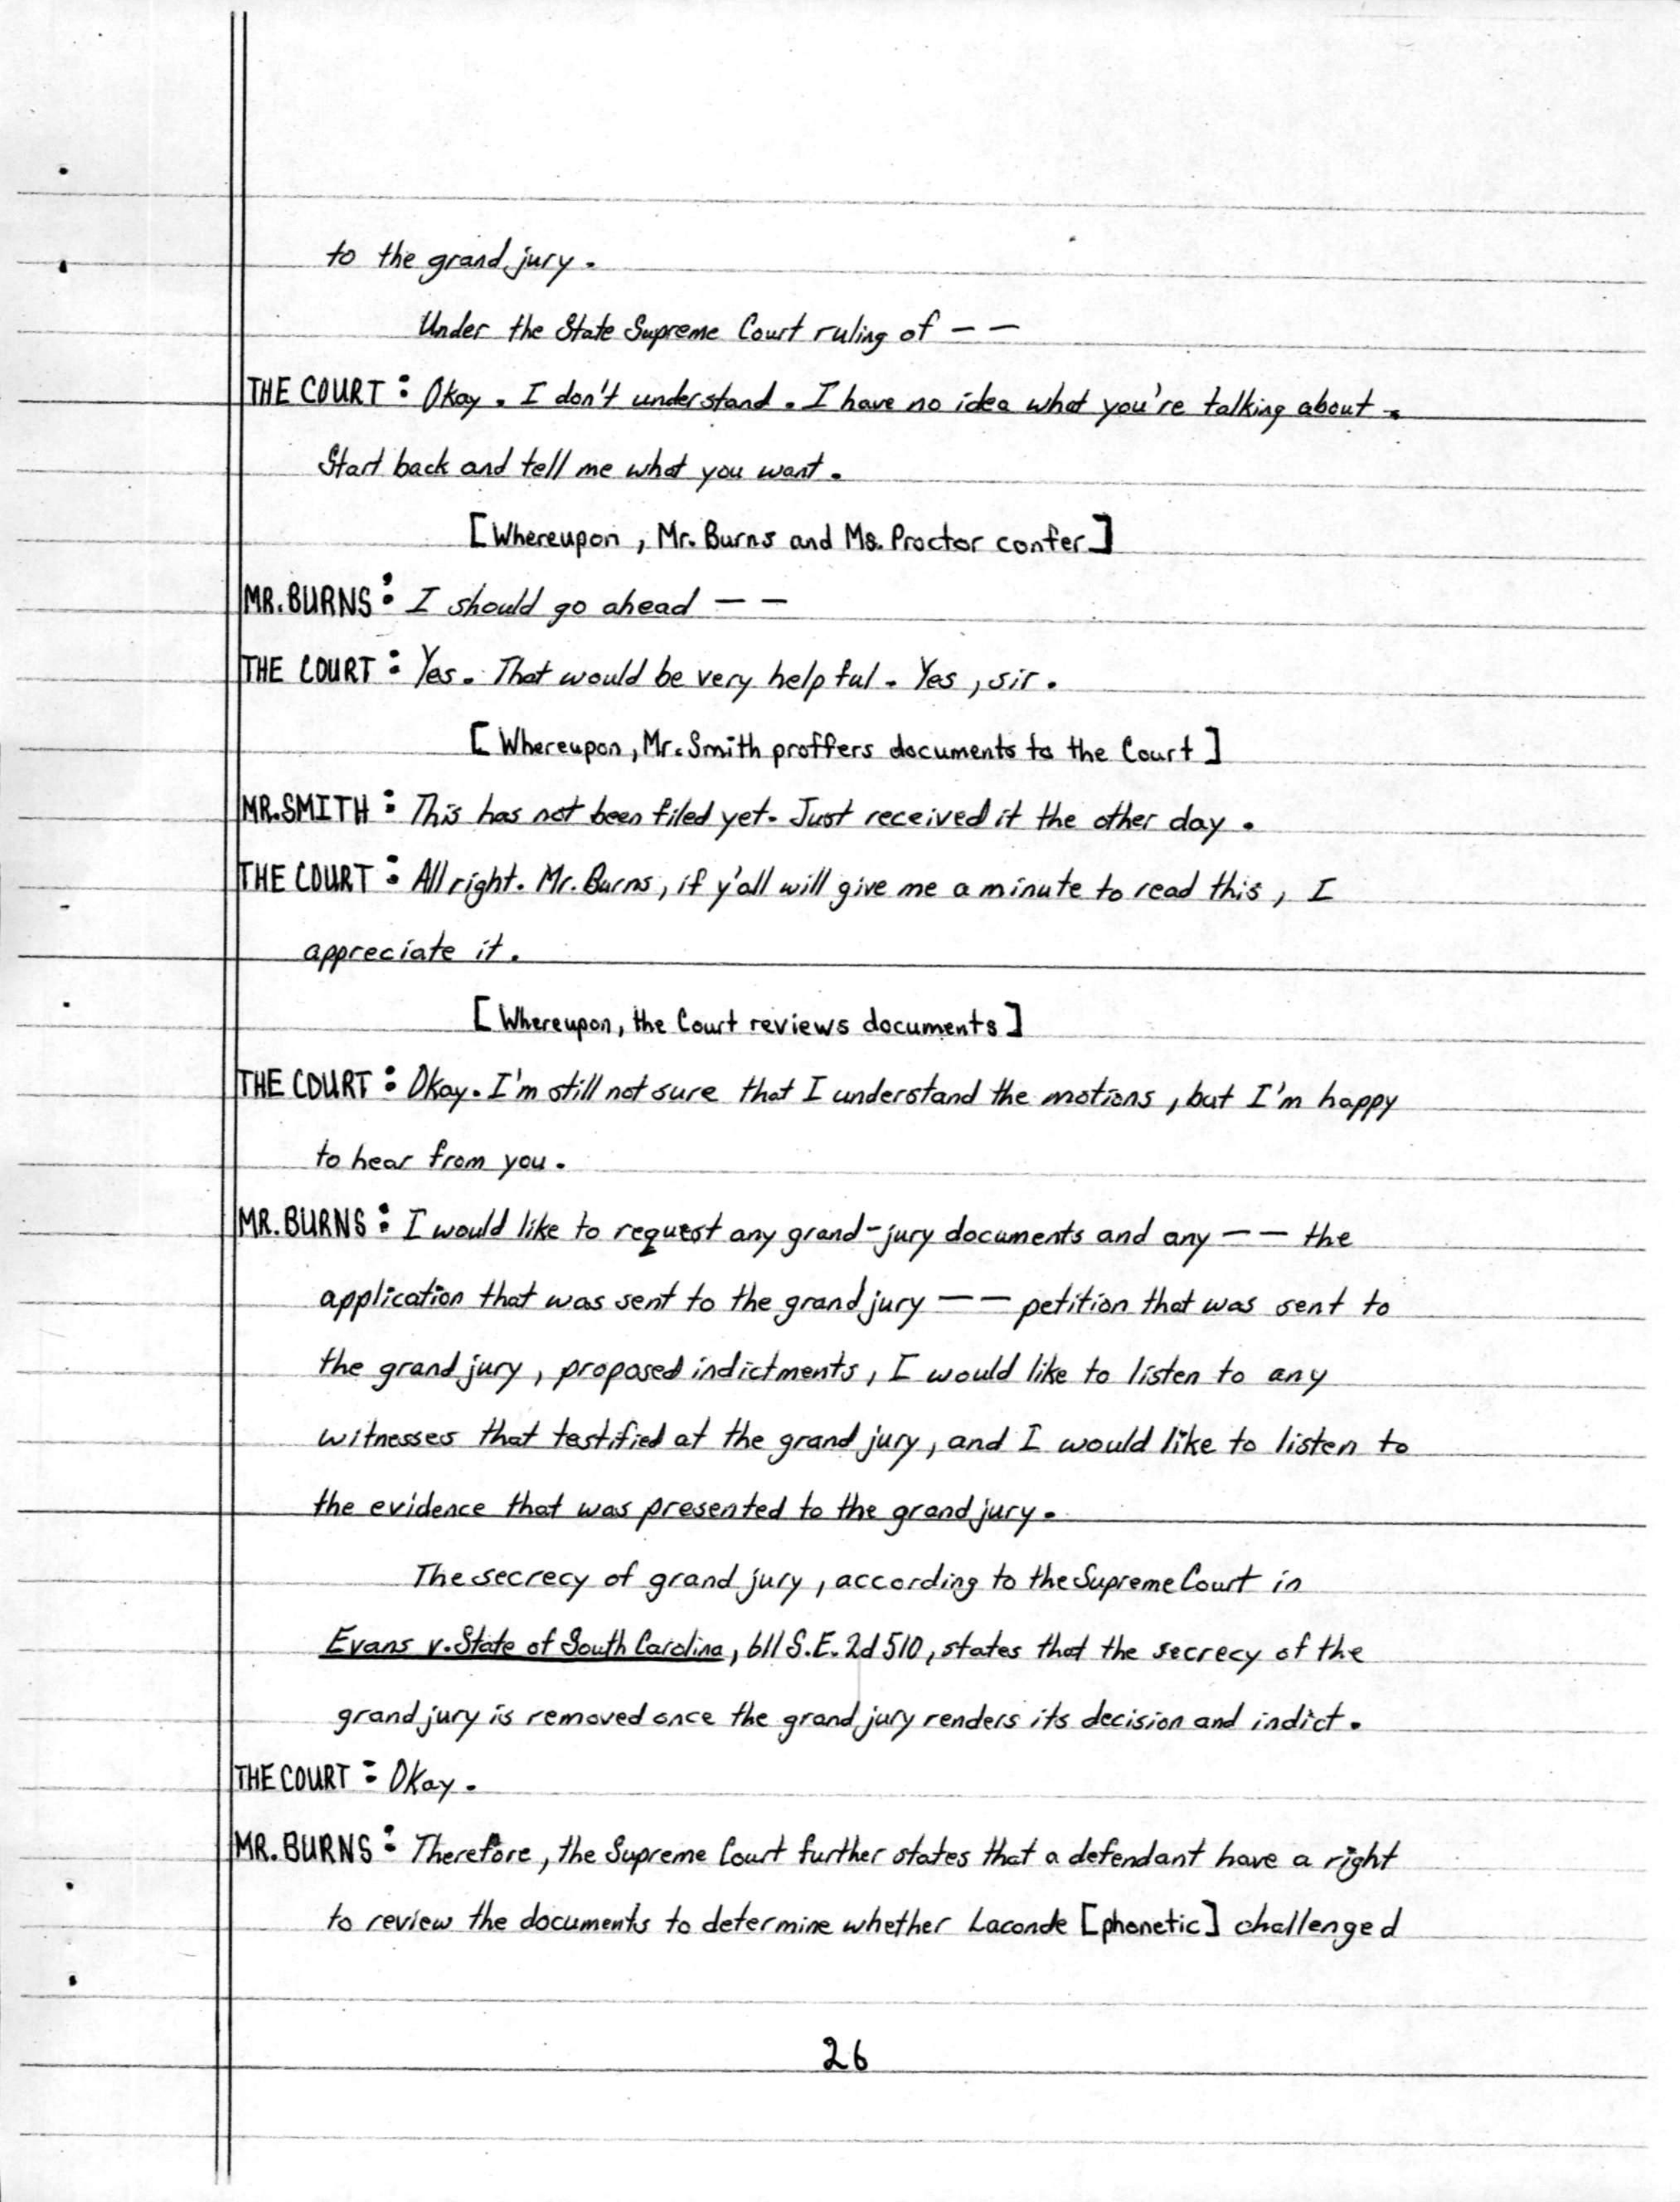 to the grand jury.
Under the State Supreme Court ruling of — —
THE COURT: Okay. I don't understand. I have no idea what you're talking about.
Start back and tell me what you want.
[Whereupon, Mr. Burns and Ms. Proctor confer]
MR. BURNS: I should go ahead — —
THE COURT: Yes. That would be very helpful. Yes, sir.
[Whereupon, Mr. Smith proffers documents to the Court]
MR. SMITH: This has not been filed yet. Just received it the other day.
THE COURT: All right. Mr. Burns, if y'all will give me a minute to read this, I
appreciate it.
[Whereupon, the Court reviews documents]
THE COURT: Okay. I'm still not sure that I understand the motions, but I'm happy
to hear from you.
MR. BURNS: I would like to request any grand-jury documents and any — — the
application that was sent to the grand jury — — petition that was sent to
the grand jury, proposed indictments, I would like to listen to any
witnesses that testified at the grand jury, and I would like to listen to
the evidence that was presented to the grand jury.
The secrecy of grand jury, according to the Supreme Court in
Evans v. State of South Carolina, 611 S.E. 2d 510, states that the secrecy of the
grand jury is removed once the grand jury renders its decision and indict.
THE COURT: Okay.
MR. BURNS: Therefore, the Supreme Court further states that a defendant have a right
to review the documents to determine whether Laconde [phonetic] challenged
26